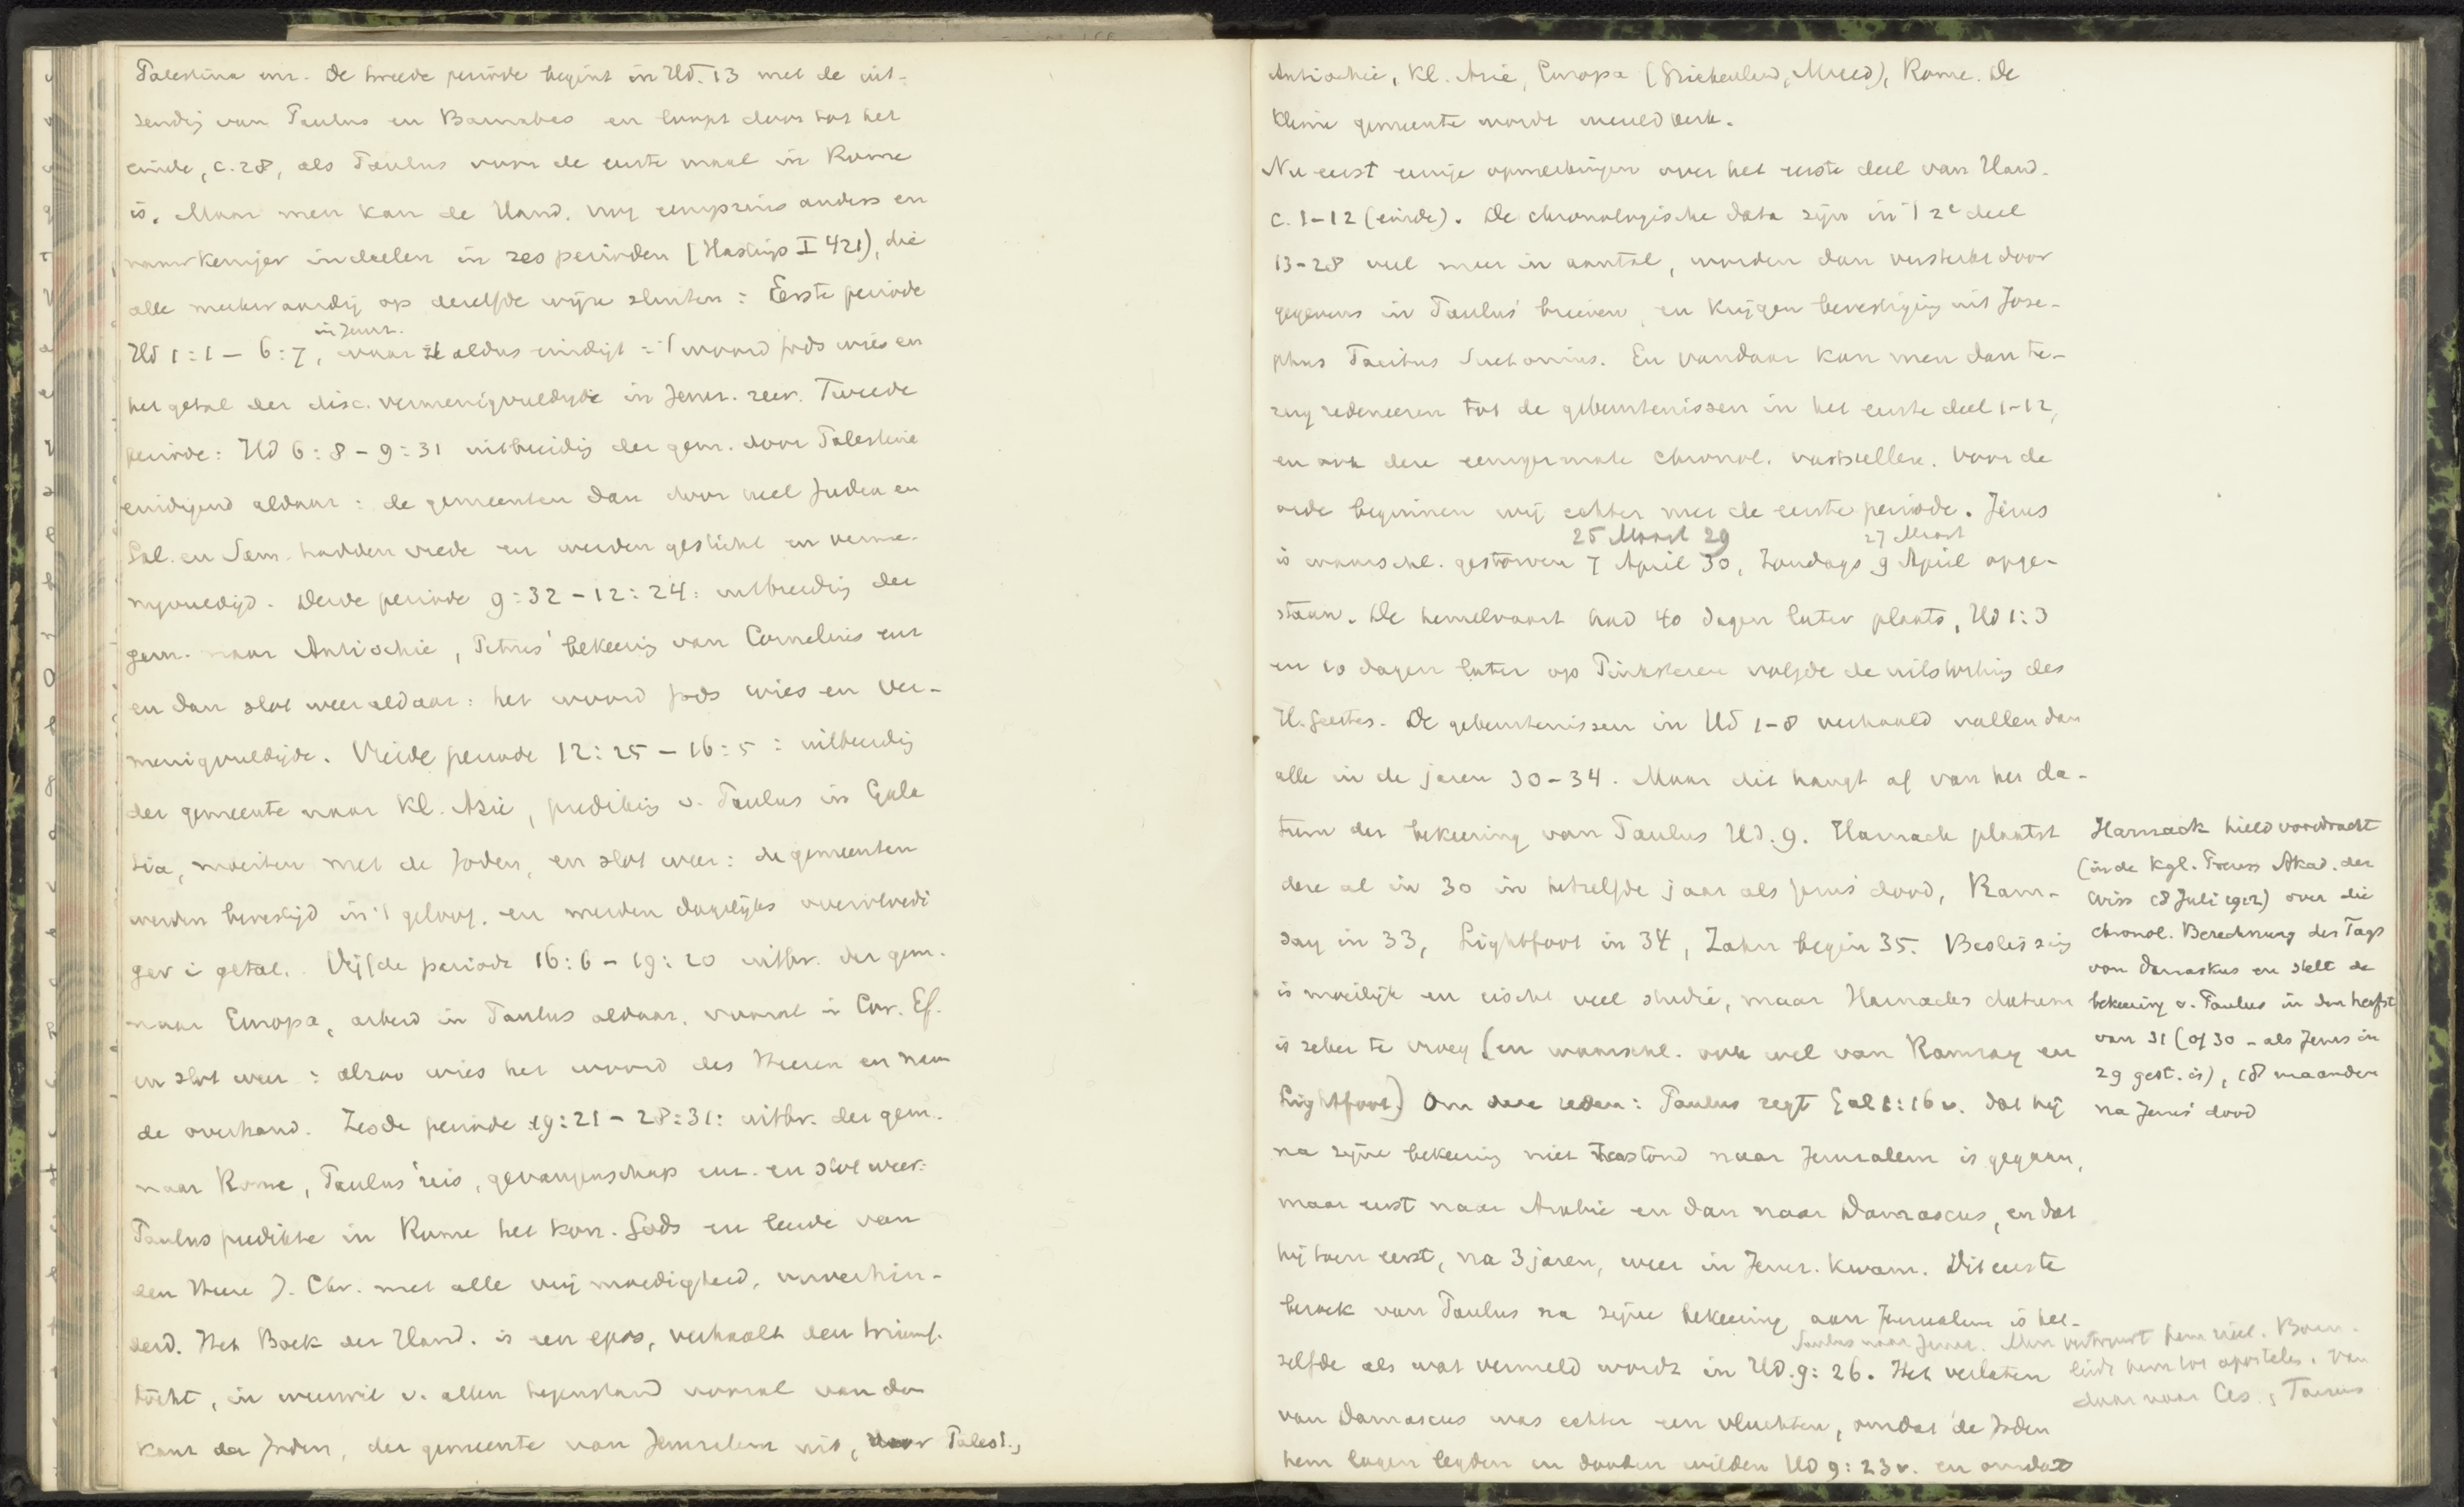 Palestina enz. De tweede periode begint in Hd. 13 met de uit-
zending van Paulus en Barnabas en loopt door tot het
einde, c. 28, als Paulus voor de eerste maal in Rome
is. Maar men kan de Hand. nog eenigszins anders en
nauwkeuriger indeelen in zes perioden (Hastings I 421), die
alle merkwaardig op dezelfde wijze sluiten: Eerste periode
in Jeruz.
Hd 1:1 – 6:7, waar ze aldus eindigt: 't woord Gods wies en
het getal der disc. vermenigvuldigde in Jeruz. zeer. Tweede
periode: Hd 6:8 – 9:31 uitbreidig der gem. door Palestina
eindigend aldaar: de gemeenten dan door heel Judea en
Gal. en Sam. hadden vrede en werden gesticht en verme-
nigvuldigd. Derde periode 9:32 – 12:24: uitbreidig der
gem. naar Antiochie, Petrus' bekeering van Cornelius enz
en dan slot weer aldaar: het woord Gods wies en ver-
menigvuldigde. Vierde periode 12:25 – 16:5: uitbreidig
der gemeente naar Kl. Azie, prediking v. Paulus in Gala
tia, moeiten met de Joden, en slot weer: de gemeenten
werden bevestigd in 't geloof. en werden dagelijks overvloedi
ger i getal. Vijfde periode 16:6 – 19:20 uitbr. der gem.
naar Europa, arbeid in Paulus aldaar, vooral i Cor. Ef.
en slot weer: alzoo wies het woord des Heeren en nam
de overhand. Zesde periode 19:21 – 28:31: uitbr. der gem.
naar Rome, Paulus' reis, gevangenschap enz. en slot weer:
Paulus predikte in Rome het kon. Gods en leerde van
den Heere J. Chr. met alle vrijmoedigheid, onverhin-
derd. Het Boek der Hand. is een epos, verhaalt den triumf-
tocht, in weerwil v. allen tegenstand vooral van den
kant der Joden, der gemeente van Jeruzalem uit, door Palest.,
Antiochie, Kl. Azie, Europa (Griekenland, Maced), Rome. De
kleine gemeente wordt wereldkerk.
Nu eerst eenige opmerkingen over het eerste deel van Hand.
c. 1–12 (einde). De chronologische data zijn in 't 2e deel
13–28 veel meer in aantal, worden dan versterkt door
gegevens in Paulus' brieven, en krijgen bevestiging uit Jose-
phus Tacitus Suetonius. En vandaar kan men dan te-
rug redeneeren tot de gebeurtenissen in het eerste deel 1–12,
en ook deze eenigermate chronol. vaststellen. Voor de
orde beginnen wij echter met de eerste periode. Jezus
25 Maart 29 27 Maart
is waarschl. gestorven 7 April 30, Zondags 9 April opge-
staan. De hemelvaart had 40 dagen later plaats, Hd 1:3
en 10 dagen later op Pinksteren volgde de uitstorting des
H. Geestes. De gebeurtenissen in Hd 1–8 verhaald vallen dan
alle in de jaren 30–34. Maar dit hangt af van het da-
tum der bekeering van Paulus Hd. 9. Harnack plaatst
deze al in 30 in hetzelfde jaar als Jezus' dood, Ram-
say in 33, Lightfoot in 34, Zahn begin 35. Beslissing
is moeilijk en eischt veel studie, maar Harnacks datum
is zeker te vroeg (en waarschl. ook wel van Ramsay en
Lightfoot.) Om deze reden: Paulus zegt Gal 1:16 v. dat hij
na zijne bekeering niet terstond naar Jeruzalem is gegaan,
maar eerst naar Arabie en dan naar Damascus, en dat
hij toen eerst, na 3 jaren, weer in Jeruz. kwam. Dit eerste
bezoek van Paulus na zijne bekeering aan Jeruzalem is het-
zelfde als wat vermeld wordt in Hd. 9:26. Het verlaten
van Damascus was echter een vluchten, omdat de Joden
hem lagen legden en dooden wilden Hd 9:23 v. en omdat
Harnack hield voordracht
(in de Kgl. Preuss Akad. der
Wiss 18 Juli 1912) over die
chronol. Berechnung des Tags
von Damaskus en stelt de
bekeering v. Paulus in den herfst
van 31 (of 30 – als Jezus in
29 gest. is), 18 maanden
na Jezus' dood
Paulus naar Jeruz. Men vertrouwt hem niet. Barn.
leidt hem tot apostelen. Van
daar naar Ces., Tarsus